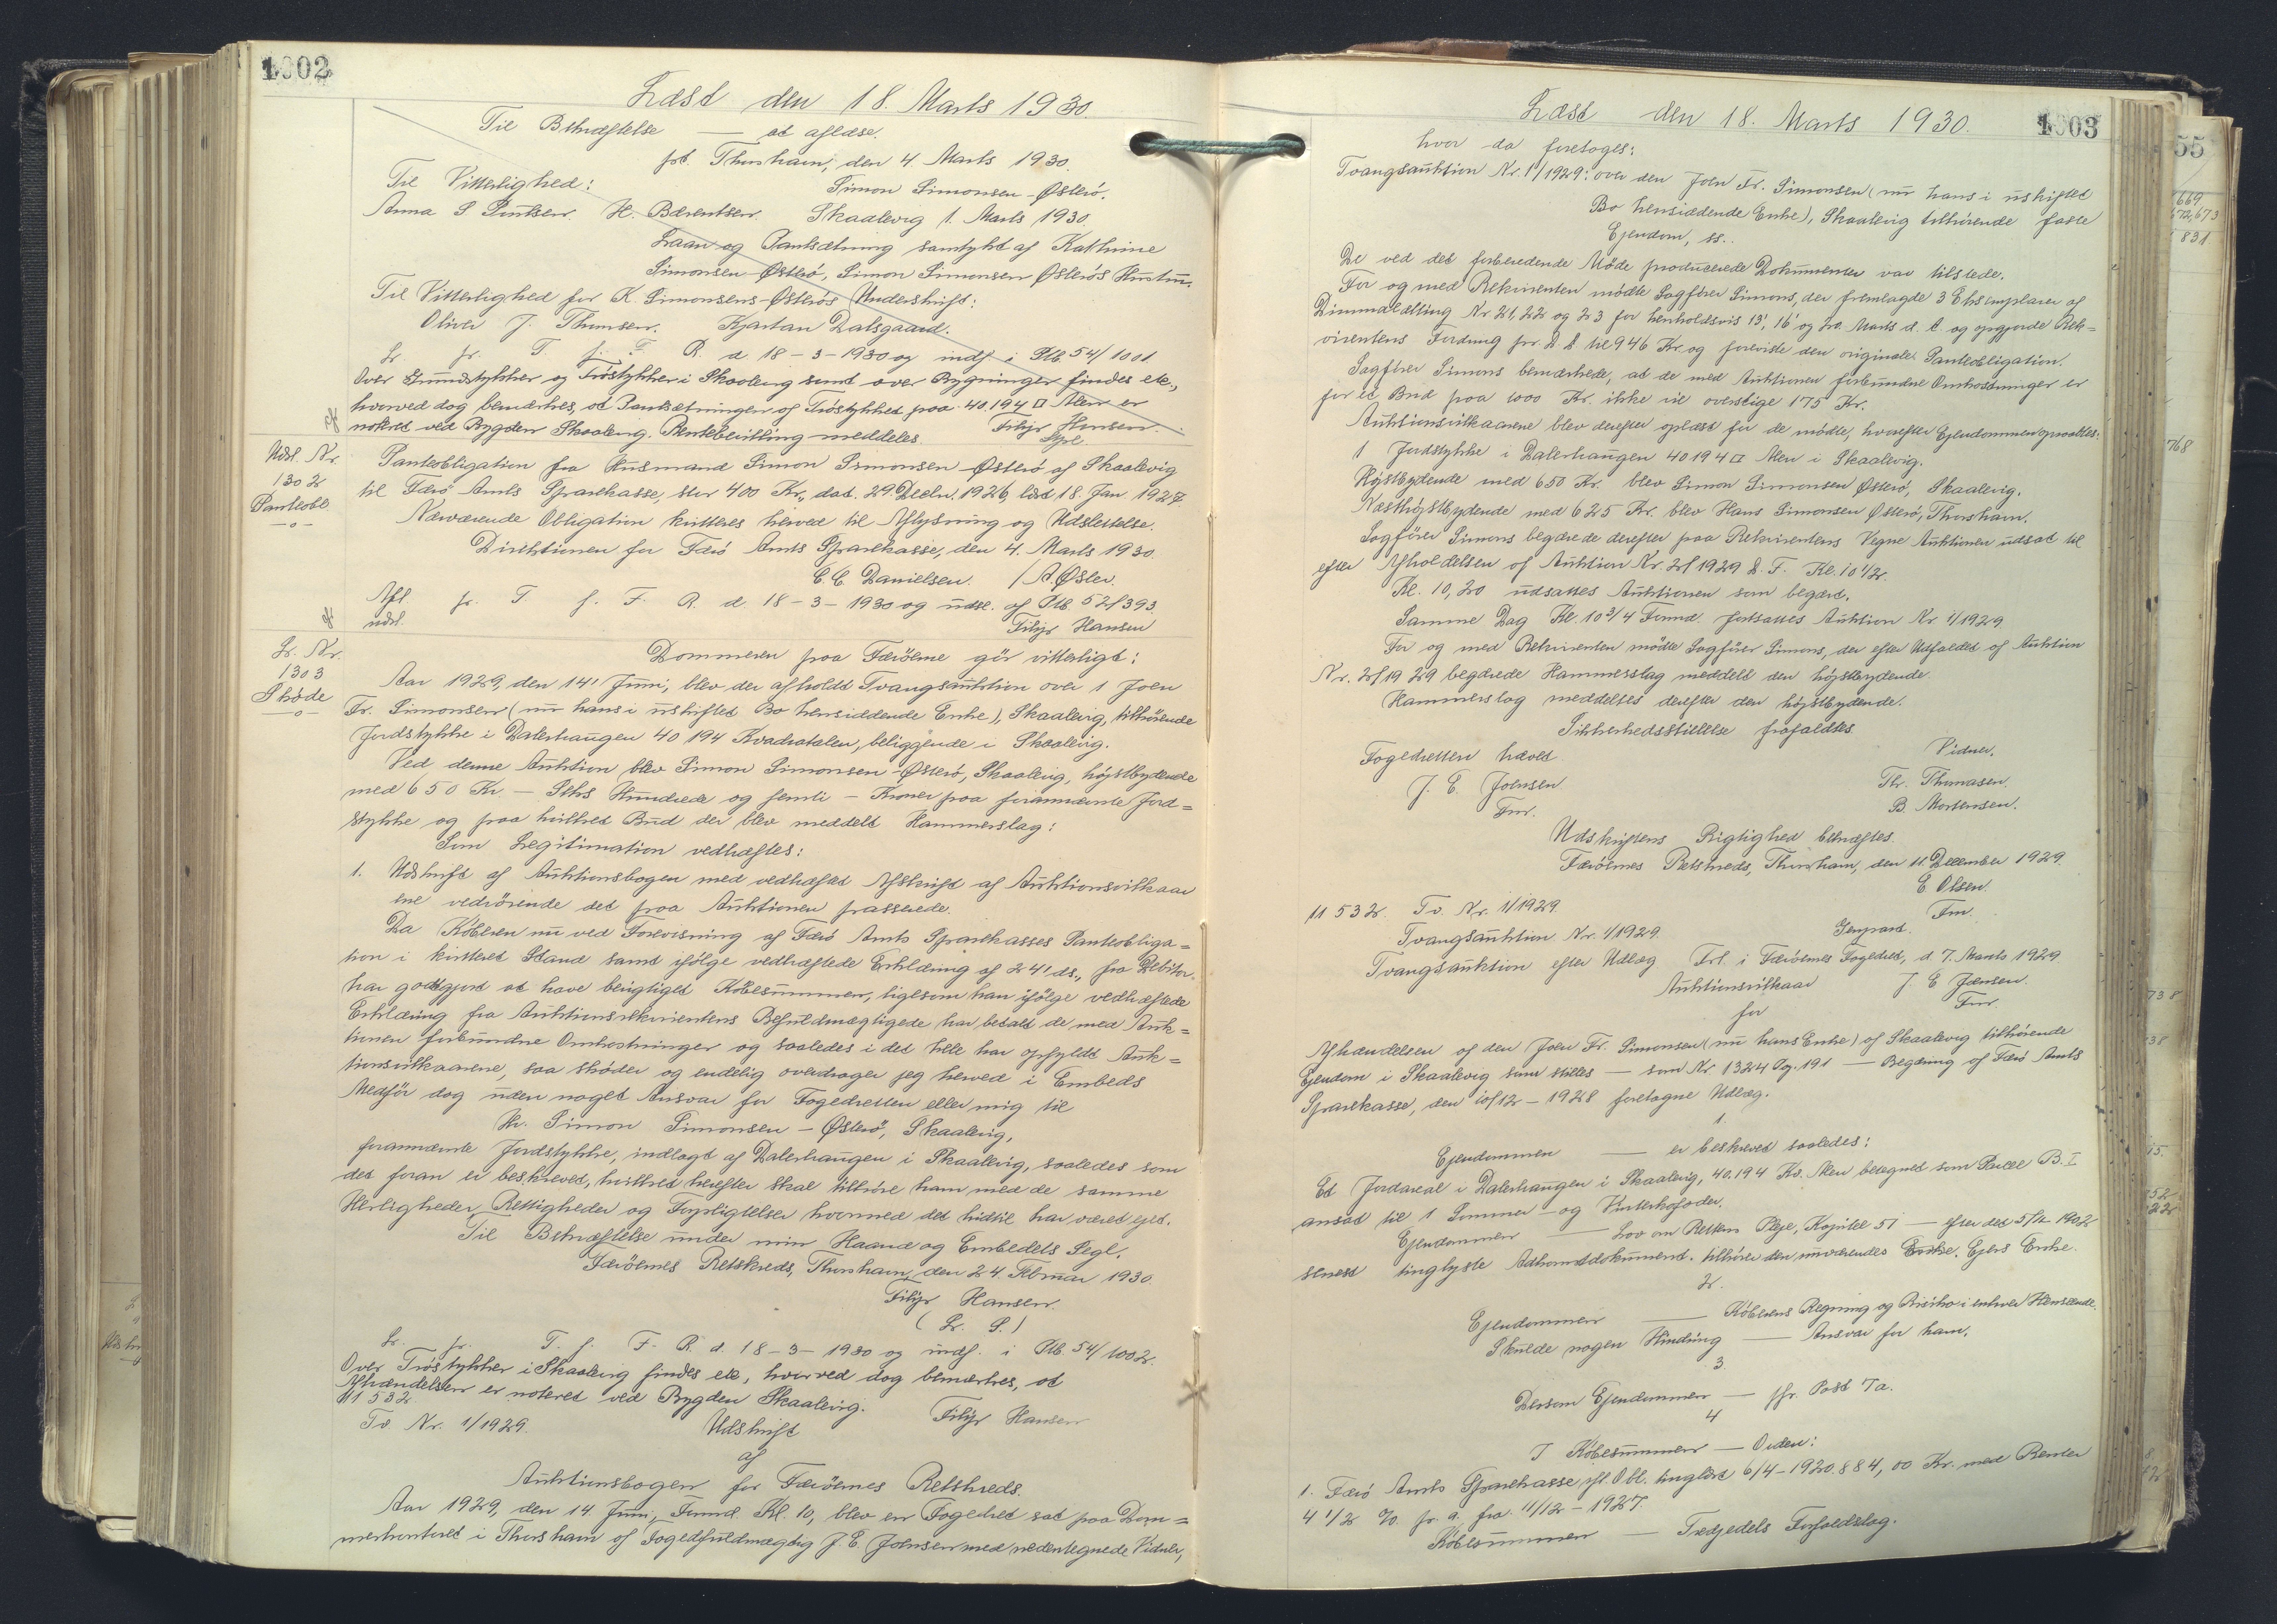 1002
Læst den 18. Marts 1930.
Til Bekræftelse — at aflæse.
pt. Thorshavn, den 4 Marts 1930.
Til Vitterlighed: Simon Simonsen-Østerö.
Anna S H. Berentsen. Skaalevig 1. Marts 1930.
Laan og Pantsætning samtykt af Kathrine
Simonsen-Østerö, Simon Simonsen Østerös Hustru.
Til Vitterlighed for K. Simonsens-Østerös Underskrift:
Oliver J. Thomsen. Kjartan Dalsgaard.
Lr. fr. T. f. F. R. d 18-3-1930 og indf. i Plb. 54/1001
Over Grundstykker og Tröstykker i Skaalevig samt over Bygninger findes etc.,
hvorved dog bemærkes, at Pantsætningen af Tröstykket paa 40.194 □ Alen er
noteret ved Bygden Skaalevig. Rentebevilling meddeles. Filip Hansen.
Udsl. Nr.
1302
Panteobl
—o—
Panteobligation fra Husmand Simon Simonsen-Østerö af Skaalevig
til Færö Amts Sparekasse, stor 400 Kr., dat. 29. Decbr. 1926, læst 18. Jan 1927.
Nærværende Obligation kvitteres herved til Aflysning og Udslettelse.
Direktionen for Færö Amts Sparekasse, den 4. Marts 1930.
C. C. Danielsen. / A. Øster.
Afl. fr. T. f. F. R. d. 18-3-1930 og udsl. af Plb 52/393.
udsl. Filip Hansen
Lr. Nr.
1303
Skøde
—o—
Dommeren paa Færöerne gör vitterligt:
Aar 1929, den 14' Juni, blev der afholdt Tvangsauktion over 1 Joen
Fr. Simonsen (nu hans i uskiftet Bo hensiddende Enke), Skaalevig, tilhörende
Jordstykke i Dalerhaugen 40194 Kvadratalen, beliggende i Skaalevig.
Ved denne Auktion blev Simon Simonsen-Østerö, Skaalevig, höjstbydende
med 650 Kr. — Seks Hundrede og femti — Kroner paa forannævnte Jord=
stykke og paa hvilket Bud der blev meddelt Hammerslag:
Som Legitimation vedhæftes:
1. Udskrift af Auktionsbogen med vedhæftet Afskrift af Auktionsvilkaar
ene vedrörende det paa Auktionen passerede.
Da Köberen nu ved Forevisning af Færö Amts Sparekasses Panteobliga=
tion i kvitteret Stand samt ifölge vedhæftede Erklæring af 24' ds., fra Debitor
har godtgjort at have berigtiget Köbesummen, ligesom han ifölge vedhæftede
Erklæring fra Auktionsrekvirentens Befuldmægtigede har betalt de med Auk=
tionen forbundne Omkostninger og saaledes i det hele har opfyldt Auk=
tionsvilkaarene, saa sköder og endelig overdrager jeg herved i Embeds
Medför dog uden noget Ansvar for Fogedretten eller mig til
Hr. Simon Simonsen-Østerö, Skaalevig,
forannævnte Jordstykke, indlagt af Dalerhaugen i Skaalevig, saaledes som
det foran er beskrevet, hvilket herefter skal tilhöre ham med de samme
Herligheder, Rettigheder og Forpligtelser hvormed det hidtil har været ejet.
Til Bekræftelse under min Haand og Embedets Segl.
Færöernes Retskreds, Thorshavn, den 24. Februar 1930.
Filip Hansen.
(L. S.)
Lr. fr. T. f. F. R. d. 18-3-1930 og indf. i Plb. 54/1002.
Over Tröstykker i Skaalevig findes etc, hvorved dog bemærkes, at
Afhændelsen er noteret ved Bygden Skaalevig. Filip Hansen
11532
Tv. Nr. 1/1929. Udskrift
af
Auktionsbogen for Færöernes Retskreds.
Aar 1929, den 14. Juni, Formd. Kl. 10, blev en Fogedret sat paa Dom=
merkontoret i Thorshavn af Fogedfuldmægtig J. E. Joensen med nedentegnede Vidner,
Læst den 18. Marts 1930. 1003
hvor da foretoges:
Tvangsauktion Nr. 1/1929: over den Joen Fr. Simonsen (nu hans i uskiftet
Bo hensiddende Enke), Skaalevig tilhörende faste
Ejendom, ss.
De ved det forberedende Möde producerede Dokumenter var tilstede.
For og med Rekvirenten mödte Sagförer Simons, der fremlagde 3 Eksemplarer af
Dimmalætting Nr 21, 22 og 23 for henholdsvis 13', 16' og 20. Marts d. A. og opgjorde Rek=
virentens Fordring pr. D. D. til 946 Kr. og foreviste den originale Panteobligation.
Sagförer Simons bemærkede, at de med Auktionen forbundne Omkostninger er
for et Bud paa 1000 Kr. ikke vil overstige 175 Kr.
Auktionsvilkaarene blev derefter oplæst for de mödte, hvorefter Ejendommen opraabtes:
1 Jordstykke i Dalerhaugen 40194 □ Alen i Skaalevig.
Höjstbydende med 650 Kr. blev Simon Simonsen Østerö, Skaalevig.
Næsthöjstbydende med 625 Kr. blev Hans Simonsen Østerö, Thorshavn.
Sagförer Simons begærede derefter paa Rekvirentens Vegne Auktionen udsat til
efter Afholdelsen af Auktion Nr. 2/1929 D. F. Kl. 10 1/2.
Kl. 10,20 udsattes Auktionen som begært.
Samme Dag Kl. 10 3/4 Formd. fortsattes Auktion Nr 1/1929
For og med Rekvirenten mödte Sagförer Simons, der efter Udfaldet af Auktion
Nr. 2/1929 begærede Hammerslag meddelt den höjstbydende.
Hammerslag meddeltes derefter den höjstbydende.
Sikkerhedsstillelse frafaldtes
Fogedretten hævet Vidner.
J. E. Joensen Th. Thomasen.
Fm. B. Mortensen.
Udskriftens Rigtighed bekræftes.
Færöernes Retskreds, Thorshavn, den 11 December 1929.
E Olsen.
Fm.
11532. Tv. Nr. 1/1929.
Tvangsauktion Nr. 1/1929. Genpart.
Tvangsauktion efter Udlæg Frl. i Færöernes Fogedret, d. 7. Marts 1929
Auktionsvilkaar J. E Joensen.
for Fm.
Afhændelsen af den Joen Fr. Simonsen (nu hans Enke) af Skaalevig tilhörende
Ejendom i Skaalevig som stilles — som Nr 1324 Og. 191 — Begæring af Færö Amts
Sparekasse, den 10/12-1928 foretagne Udlæg.
1.
Ejendommen — er beskrevet saaledes:
Et Jordareal i Dalerhaugen i Skaalevig, 40.194 Kv. Alen betegnet som Parcel B. I
ansat til 1 Sommer- og Vinterkofoder.
Ejendommen — Lov om Rettens Pleje, Kapitel 51 — efter det 5/4-1902
senest tinglyste Adkomstdokument. tilhörer den nuværendes Enke. Ejers Enke.
2.
Ejendommen — Köberens Regning og Risiko i enhver Henseende.
Skulde nogen Hindring — Ansvar for ham.
3.
Dersom Ejendommen — jfr. Post 7a.
4
I Köbesummen — Orden:
1. Færö Amts Sparekasse ifl. Obl. tinglæst 6/4-1920. 884,00 Kr. med Renter
4 1/2 % p. a. fra 11/12-1927.
Köbesummen — Tredjedels Forfaldsdag.
55
669
672,673
831
768
738